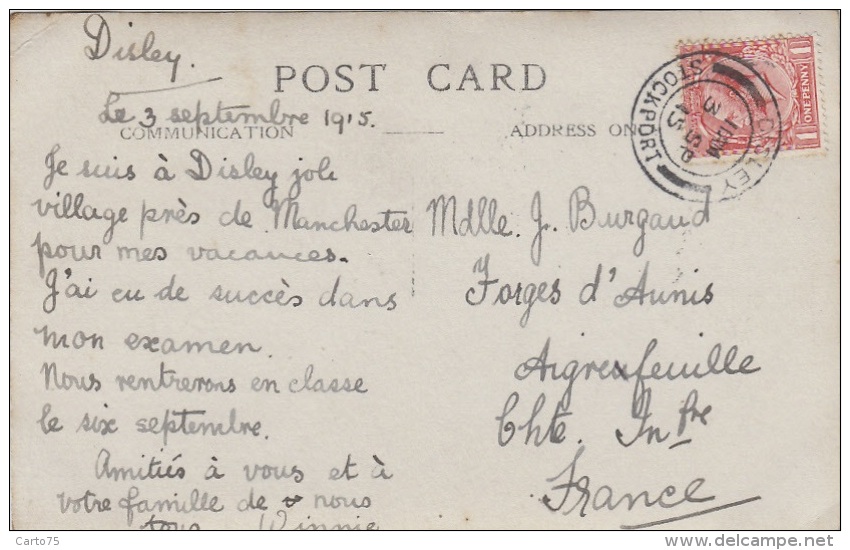 Disley.
POST CARD
Le 3 septembre 1915.
COMMUNICATION
ADDRESS ON
ONE PENNY
1 1
DISLEY
STOCKPORT
3 SP
15
Je suis à Disley joli
village près de Manchester
pour mes vacances.
J'ai eu de succès dans
mon examen.
Nous rentrerons en classe
le six septembre.
Amitiés à vous et à
votre famille de nous
tous Winnie
Mdlle. J. Burgaud
Forges d'Aunis
Aigrefeuille
Chte. Infre
France
Carto75
delcampe.net